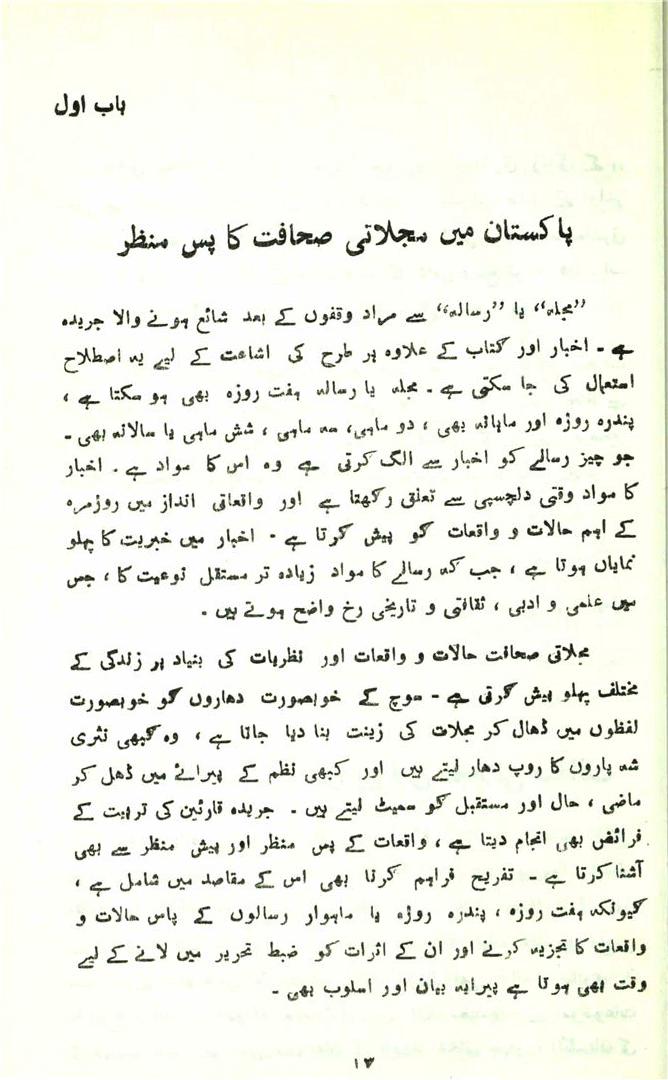 باب اول
پاکستان میں مجلاتی صحافت کا پس منظر
”مجلہ“ یا ”رسالہ“ سے مراد وقفوں کے بعد شائع ہونے والا جریدہ
ہے ۔ اخبار اور کتاب کے علاوہ ہر طرح کی اشاعت کے لیے یہ اصطلاح
استعمال کی جا سکتی ہے ۔ مجلہ یا رسالہ ہفت روزہ بھی ہو سکتا ہے ،
پندرہ روزہ اور ماہانہ بھی ، دو ماہی، سہ ماہی ، شش ماہی یا سالانہ بھی ۔
جو چیز رسالے کو اخبار سے الگ کرتی ہے وہ اس کا مواد ہے ۔ اخبار
کا مواد وقتی دلچسپی سے تعلق رکھتا ہے اور واقعاتی انداز میں روزمرہ
کے اہم حالات و واقعات کو پیش کرتا ہے ۔ اخبار میں خبریت کا پہلو
نمایاں ہوتا ہے ، جب کہ رسالے کا مواد زیادہ تر مستقل نوعیت کا ، جس
میں علمی و ادبی ، ثقافتی و تاریخی رخ واضح ہوتے ہیں ۔
مجلاتی صحافت حالات و واقعات اور نظریات کی بنیاد پر زندگی کے
مختلف پہلو پیش کرتی ہے ۔ سوچ کے خوبصورت دھاروں کو خوبصورت
لفظوں میں ڈھال کر مجلات کی زینت بنا دیا جاتا ہے ، وہ کبھی نثری
شہ پاروں کا روپ دھار لیتے ہیں اور کبھی نظم کے پیرائے میں ڈھل کر
ماضی ، حال اور مستقبل کو سمیٹ لیتے ہیں ۔ جریدہ قارئین کی تربیت کے
فرائض بھی انجام دیتا ہے ، واقعات کے پس منظر اور پیش منظر سے بھی
آشنا کرتا ہے ۔ تفریح فراہم کرنا بھی اس کے مقاصد میں شامل ہے ،
کیونکہ ہفت روزہ ، پندرہ روزہ یا ماہوار رسالوں کے پاس حالات و
واقعات کا تجزیہ کرنے اور ان کے اثرات کو ضبط تحریر میں لانے کے لیے
وقت بھی ہوتا ہے پیرایہ بیان اور اسلوب بھی ۔
۱۳